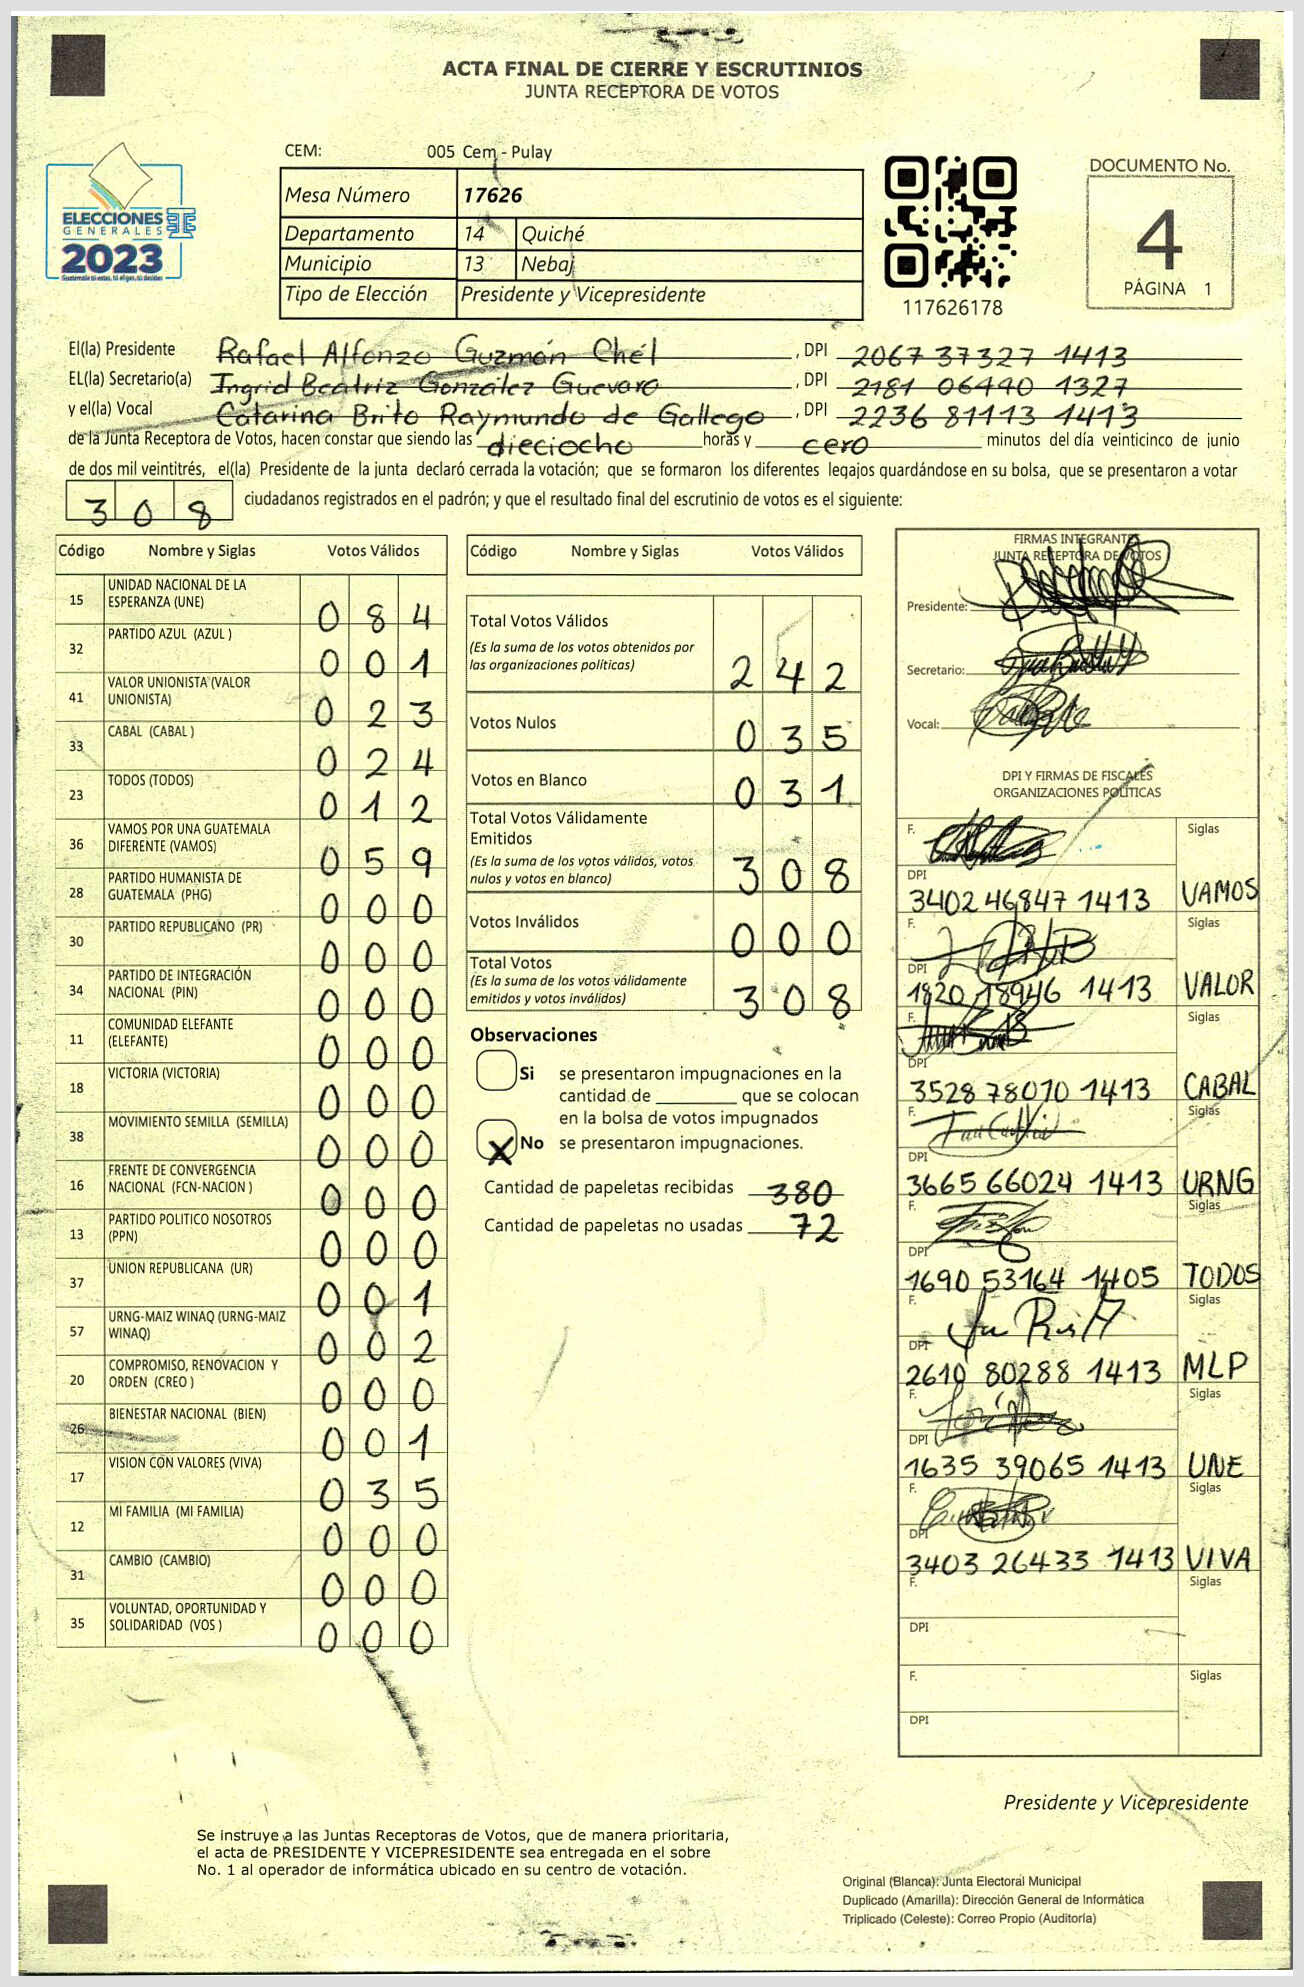 ACTA FINAL DE CIERRE Y ESCRUTINIOS
JUNTA RECEPTORA DE VOTOS
CEM: 005 Cem - Pulay
Mesa Número 17626
Departamento 14 Quiché
Municipio 13 Nebaj
Tipo de Elección Presidente y Vicepresidente
ELECCIONES
GENERALES
2023
117626178
DOCUMENTO No.
4
PÁGINA 1
El(la) Presidente Rafael Alfonzo Guzmán Chél , DPI 2067 37327 1413
EL(la) Secretario(a) Ingrid Beatriz González Guevara , DPI 2181 06440 1327
y el(la) Vocal Catarina Brito Raymundo de Gallego , DPI 2236 81113 1413
de la Junta Receptora de Votos, hacen constar que siendo las dieciocho horas y cero minutos del día veinticinco de junio
de dos mil veintitrés, el(la) Presidente de la junta declaró cerrada la votación; que se formaron los diferentes legajos quardándose en su bolsa, que se presentaron a votar
308 ciudadanos registrados en el padrón; y que el resultado final del escrutinio de votos es el siguiente:
Código Nombre y Siglas Votos Válidos
15 UNIDAD NACIONAL DE LA ESPERANZA (UNE) 084
32 PARTIDO AZUL (AZUL ) 001
41 VALOR UNIONISTA (VALOR UNIONISTA) 023
33 CABAL (CABAL ) 024
23 TODOS (TODOS) 012
36 VAMOS POR UNA GUATEMALA DIFERENTE (VAMOS) 059
28 PARTIDO HUMANISTA DE GUATEMALA (PHG) 000
30 PARTIDO REPUBLICANO (PR) 000
34 PARTIDO DE INTEGRACIÓN NACIONAL (PIN) 000
11 COMUNIDAD ELEFANTE (ELEFANTE) 000
18 VICTORIA (VICTORIA) 000
38 MOVIMIENTO SEMILLA (SEMILLA) 000
16 FRENTE DE CONVERGENCIA NACIONAL (FCN-NACION ) 000
13 PARTIDO POLITICO NOSOTROS (PPN) 000
37 UNION REPUBLICANA (UR) 001
57 URNG-MAIZ WINAQ (URNG-MAIZ WINAQ) 002
20 COMPROMISO, RENOVACION Y ORDEN (CREO ) 000
26 BIENESTAR NACIONAL (BIEN) 001
17 VISION CON VALORES (VIVA) 035
12 MI FAMILIA (MI FAMILIA) 000
31 CAMBIO (CAMBIO) 000
35 VOLUNTAD, OPORTUNIDAD Y SOLIDARIDAD (VOS ) 000
Código Nombre y Siglas Votos Válidos
Total Votos Válidos 242
(Es la suma de los votos obtenidos por
las organizaciones políticas)
Votos Nulos 035
Votos en Blanco 031
Total Votos Válidamente
Emitidos 308
(Es la suma de los votos válidos, votos
nulos y votos en blanco)
Votos Inválidos 000
Total Votos 308
(Es la suma de los votos válidamente
emitidos y votos inválidos)
Observaciones
Si se presentaron impugnaciones en la
cantidad de ________ que se colocan
en la bolsa de votos impugnados
X No se presentaron impugnaciones.
Cantidad de papeletas recibidas 380
Cantidad de papeletas no usadas 72
FIRMAS INTEGRANTES
JUNTA RECEPTORA DE VOTOS
Presidente:
Secretario:
Vocal:
DPI Y FIRMAS DE FISCALES
ORGANIZACIONES POLÍTICAS
F. Siglas
DPI 3402 46847 1413 VAMOS
F. Siglas
DPI 1820 18946 1413 VALOR
F. Siglas
DPI 3528 78070 1413 CABAL
F. Siglas
DPI 3665 66024 1413 URNG
F. Siglas
DPI 1690 53164 1405 TODOS
F. Siglas
DPI 2610 80288 1413 MLP
F. Siglas
DPI 1635 39065 1413 UNE
F. Siglas
DPI 3403 26433 1413 VIVA
F. Siglas
DPI
F. Siglas
DPI
Presidente y Vicepresidente
Se instruye a las Juntas Receptoras de Votos, que de manera prioritaria,
el acta de PRESIDENTE Y VICEPRESIDENTE sea entregada en el sobre
No. 1 al operador de informática ubicado en su centro de votación.
Original (Blanca): Junta Electoral Municipal
Duplicado (Amarilla): Dirección General de Informática
Triplicado (Celeste): Correo Propio (Auditoría)